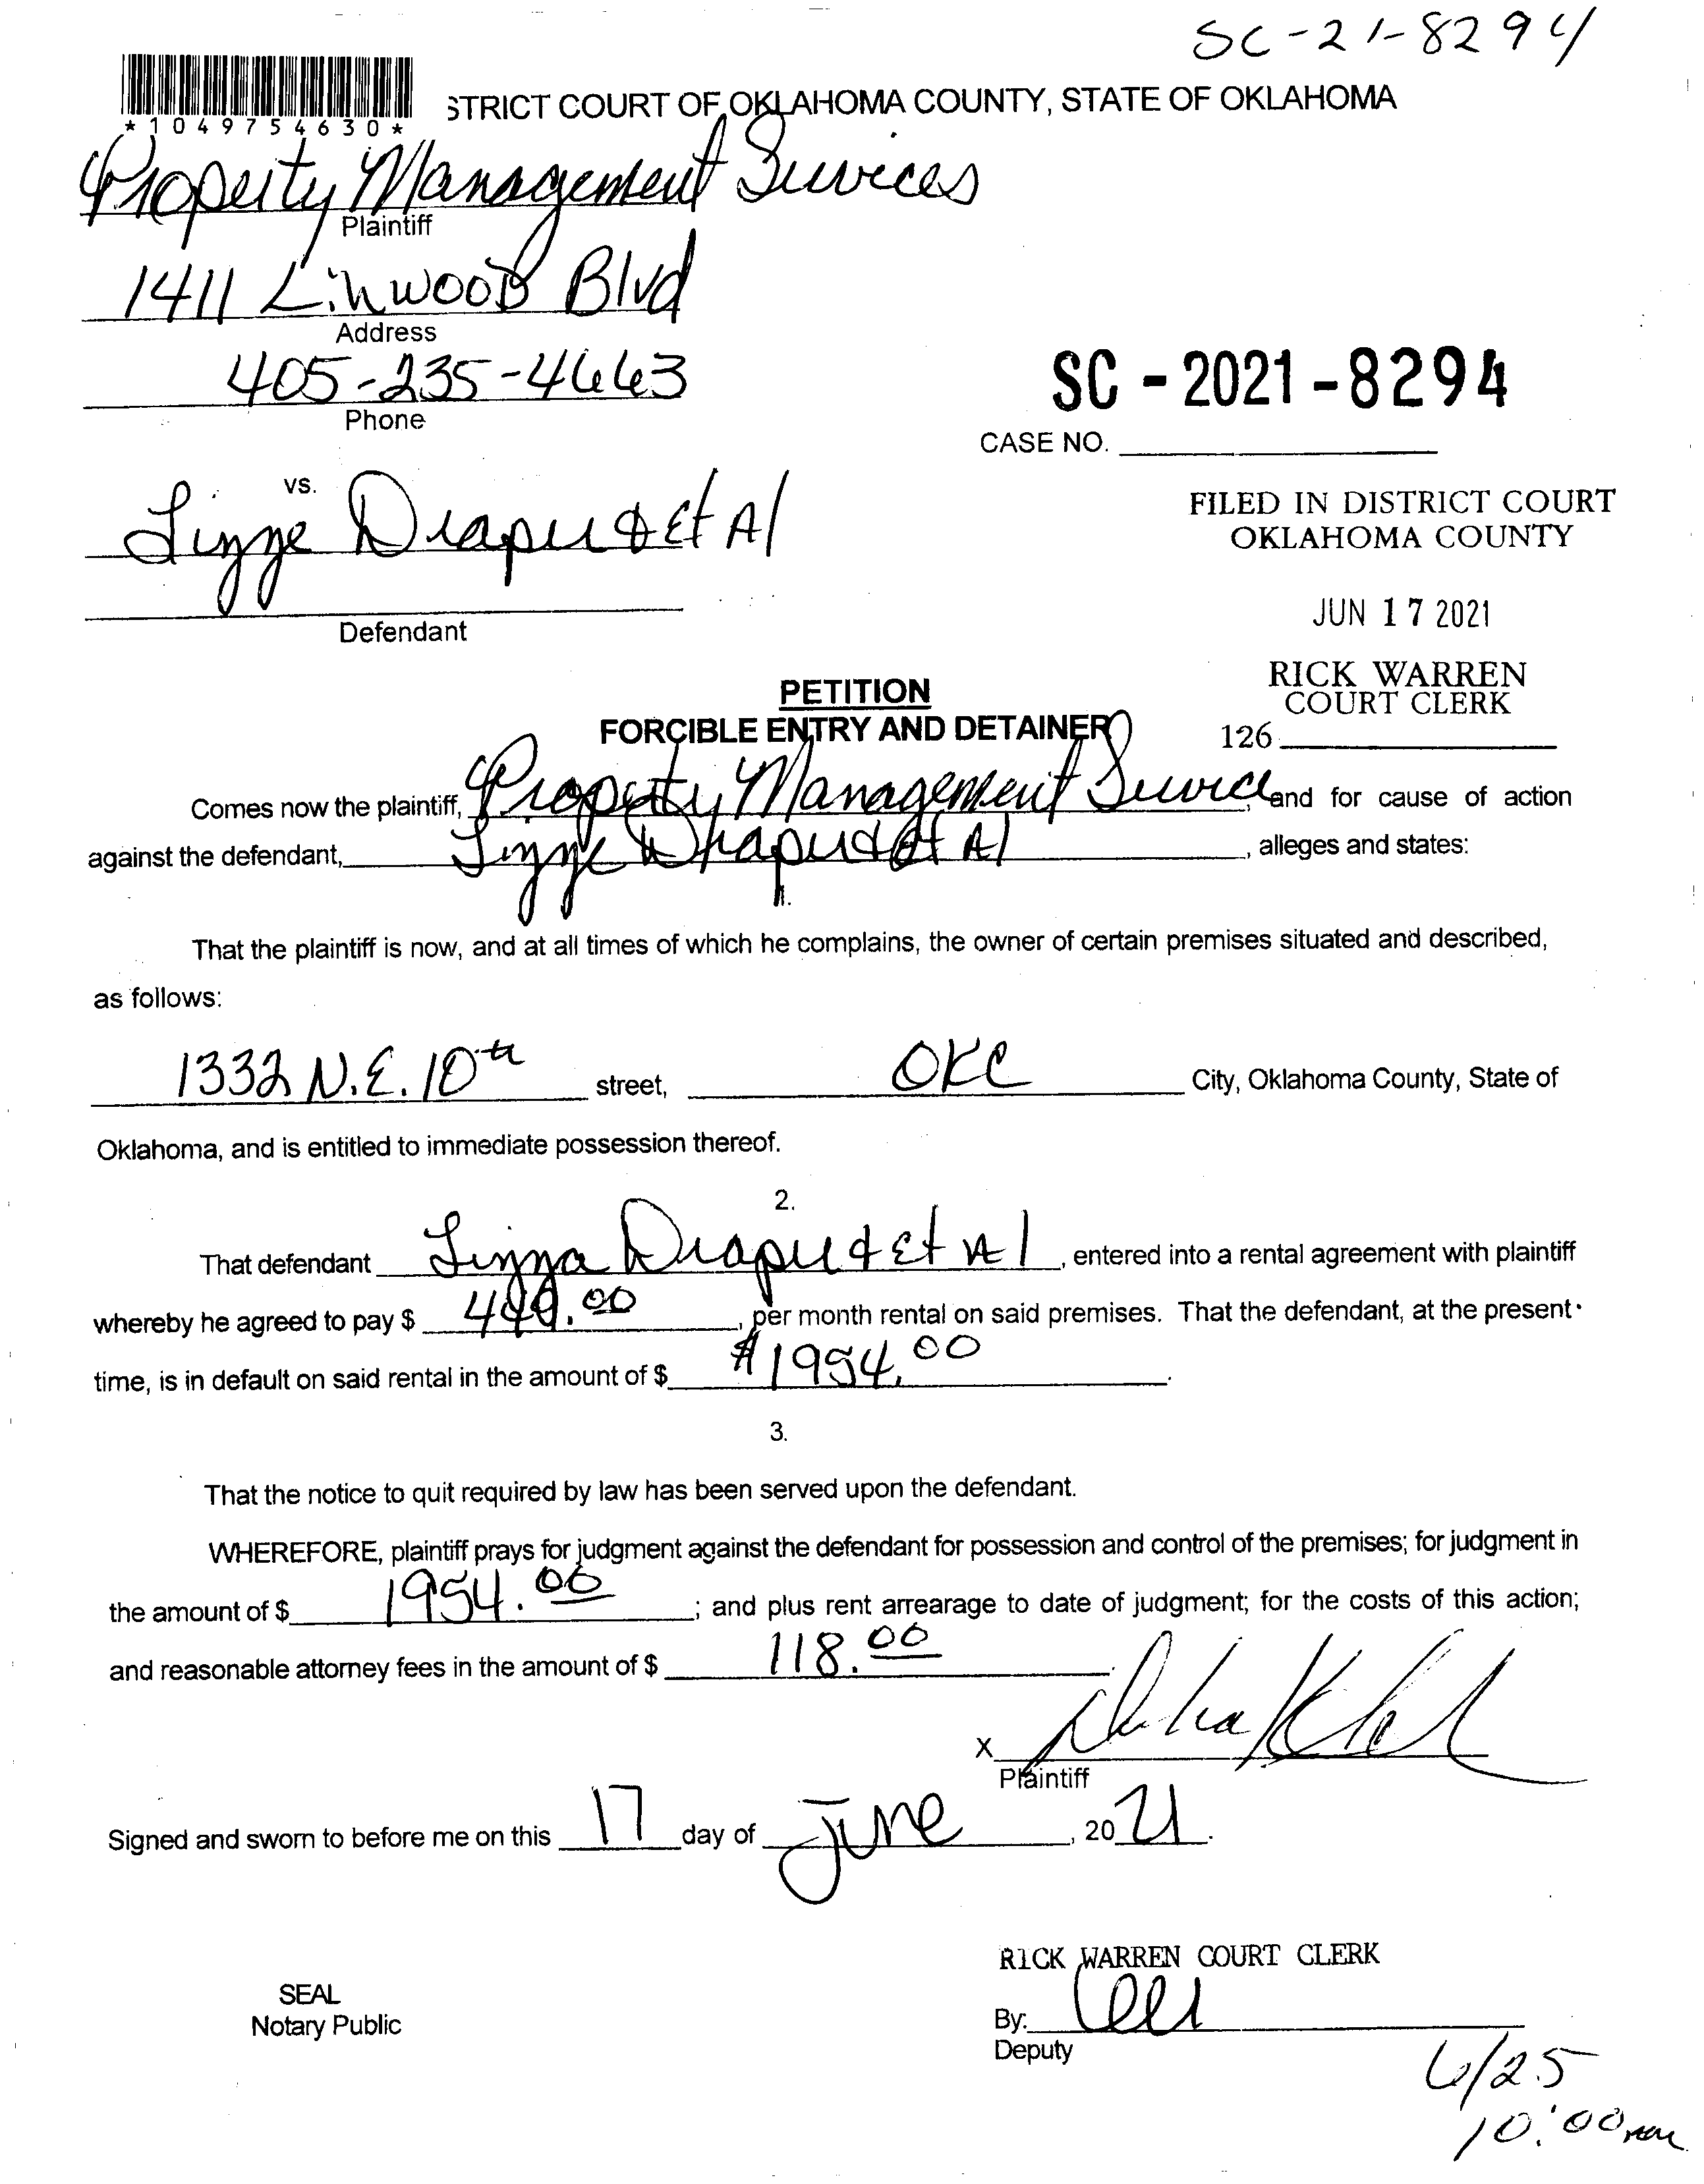 SC-21-8294
*1049754630*
STRICT COURT OF OKLAHOMA COUNTY, STATE OF OKLAHOMA
Property Management Services
Plaintiff
1411 Linwood Blvd
Address
405-235-4663
Phone
SC-2021-8294
CASE NO.
vs.
Lizze Draper & Et Al
Defendant
FILED IN DISTRICT COURT
OKLAHOMA COUNTY
JUN 17 2021
RICK WARREN
COURT CLERK
126
PETITION
FORCIBLE ENTRY AND DETAINER
Comes now the plaintiff, Property Management Service, and for cause of action
against the defendant, Lizze Draper & Et Al, alleges and states:
1.
That the plaintiff is now, and at all times of which he complains, the owner of certain premises situated and described,
as follows:
1332 N.E. 10th street, OKC City, Oklahoma County, State of
Oklahoma, and is entitled to immediate possession thereof.
2.
That defendant Lizza Draper & Et Al, entered into a rental agreement with plaintiff
whereby he agreed to pay $ , per month rental on said premises. That the defendant, at the present
time, is in default on said rental in the amount of $ $1954.00.
3.
That the notice to quit required by law has been served upon the defendant.
WHEREFORE, plaintiff prays for judgment against the defendant for possession and control of the premises; for judgment in
the amount of $ 1954.00; and plus rent arrearage to date of judgment; for the costs of this action;
and reasonable attorney fees in the amount of $ 118.00.
X
Plaintiff
Signed and sworn to before me on this 17 day of June, 2021.
RICK WARREN COURT CLERK
SEAL
Notary Public
By:
Deputy
6/25
10:00am